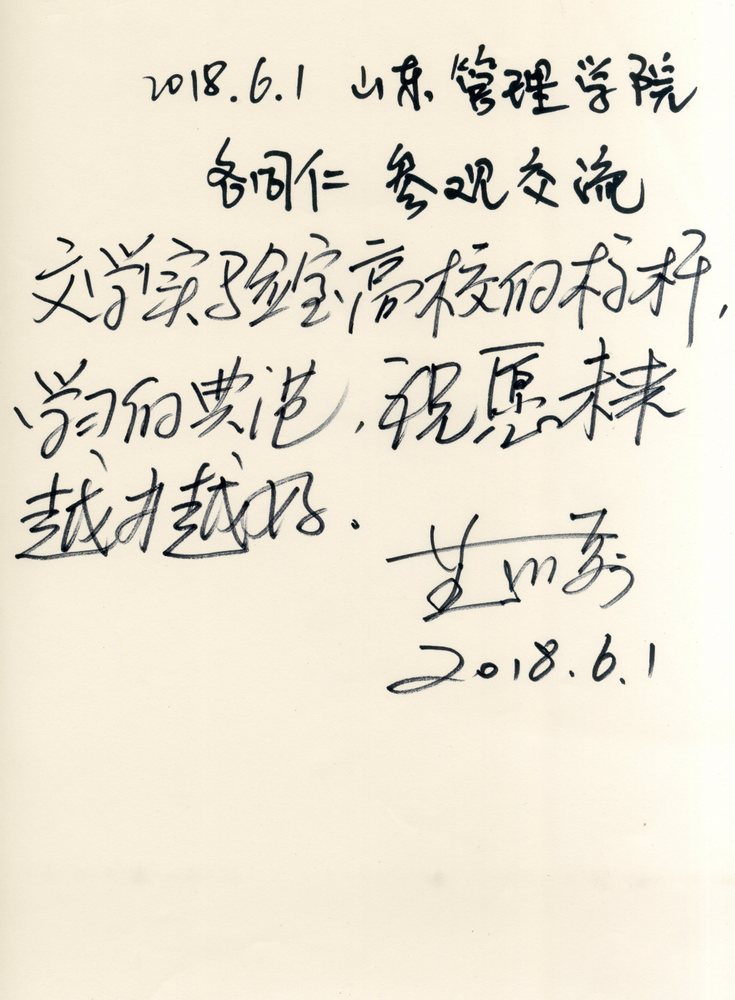 2018.6.1 山东管理学院
各同仁 参观交流
文学实验室高校的标杆,
学习的典范,祝愿未来
越办越好.
2018.6.1